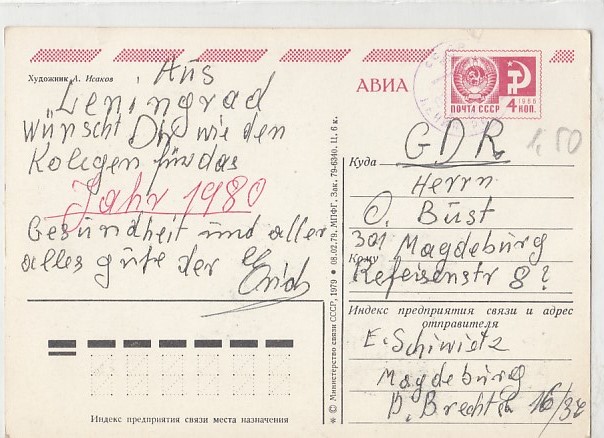 Художник А. Исаков
Aus
Leningrad
wünscht Dir wie den
Kollegen für das
Jahr 1980
Gesundheit und aller
alles gute der
Erich
АВИА
ПОЧТА СССР
1966
4 КОП.
1,50
GDR
Куда
Herrn
O. Büst
301 Magdeburg
Кому
8?
Индекс предприятия связи и адрес
отправителя
E. Schiwietz
Magdeburg
B. Brecht 16/
© Министерство связи СССР, 1979 • 08.02.79. МПФГ, Зак. 79-6340. Ц. 6 к.
Индекс предприятия связи места назначения